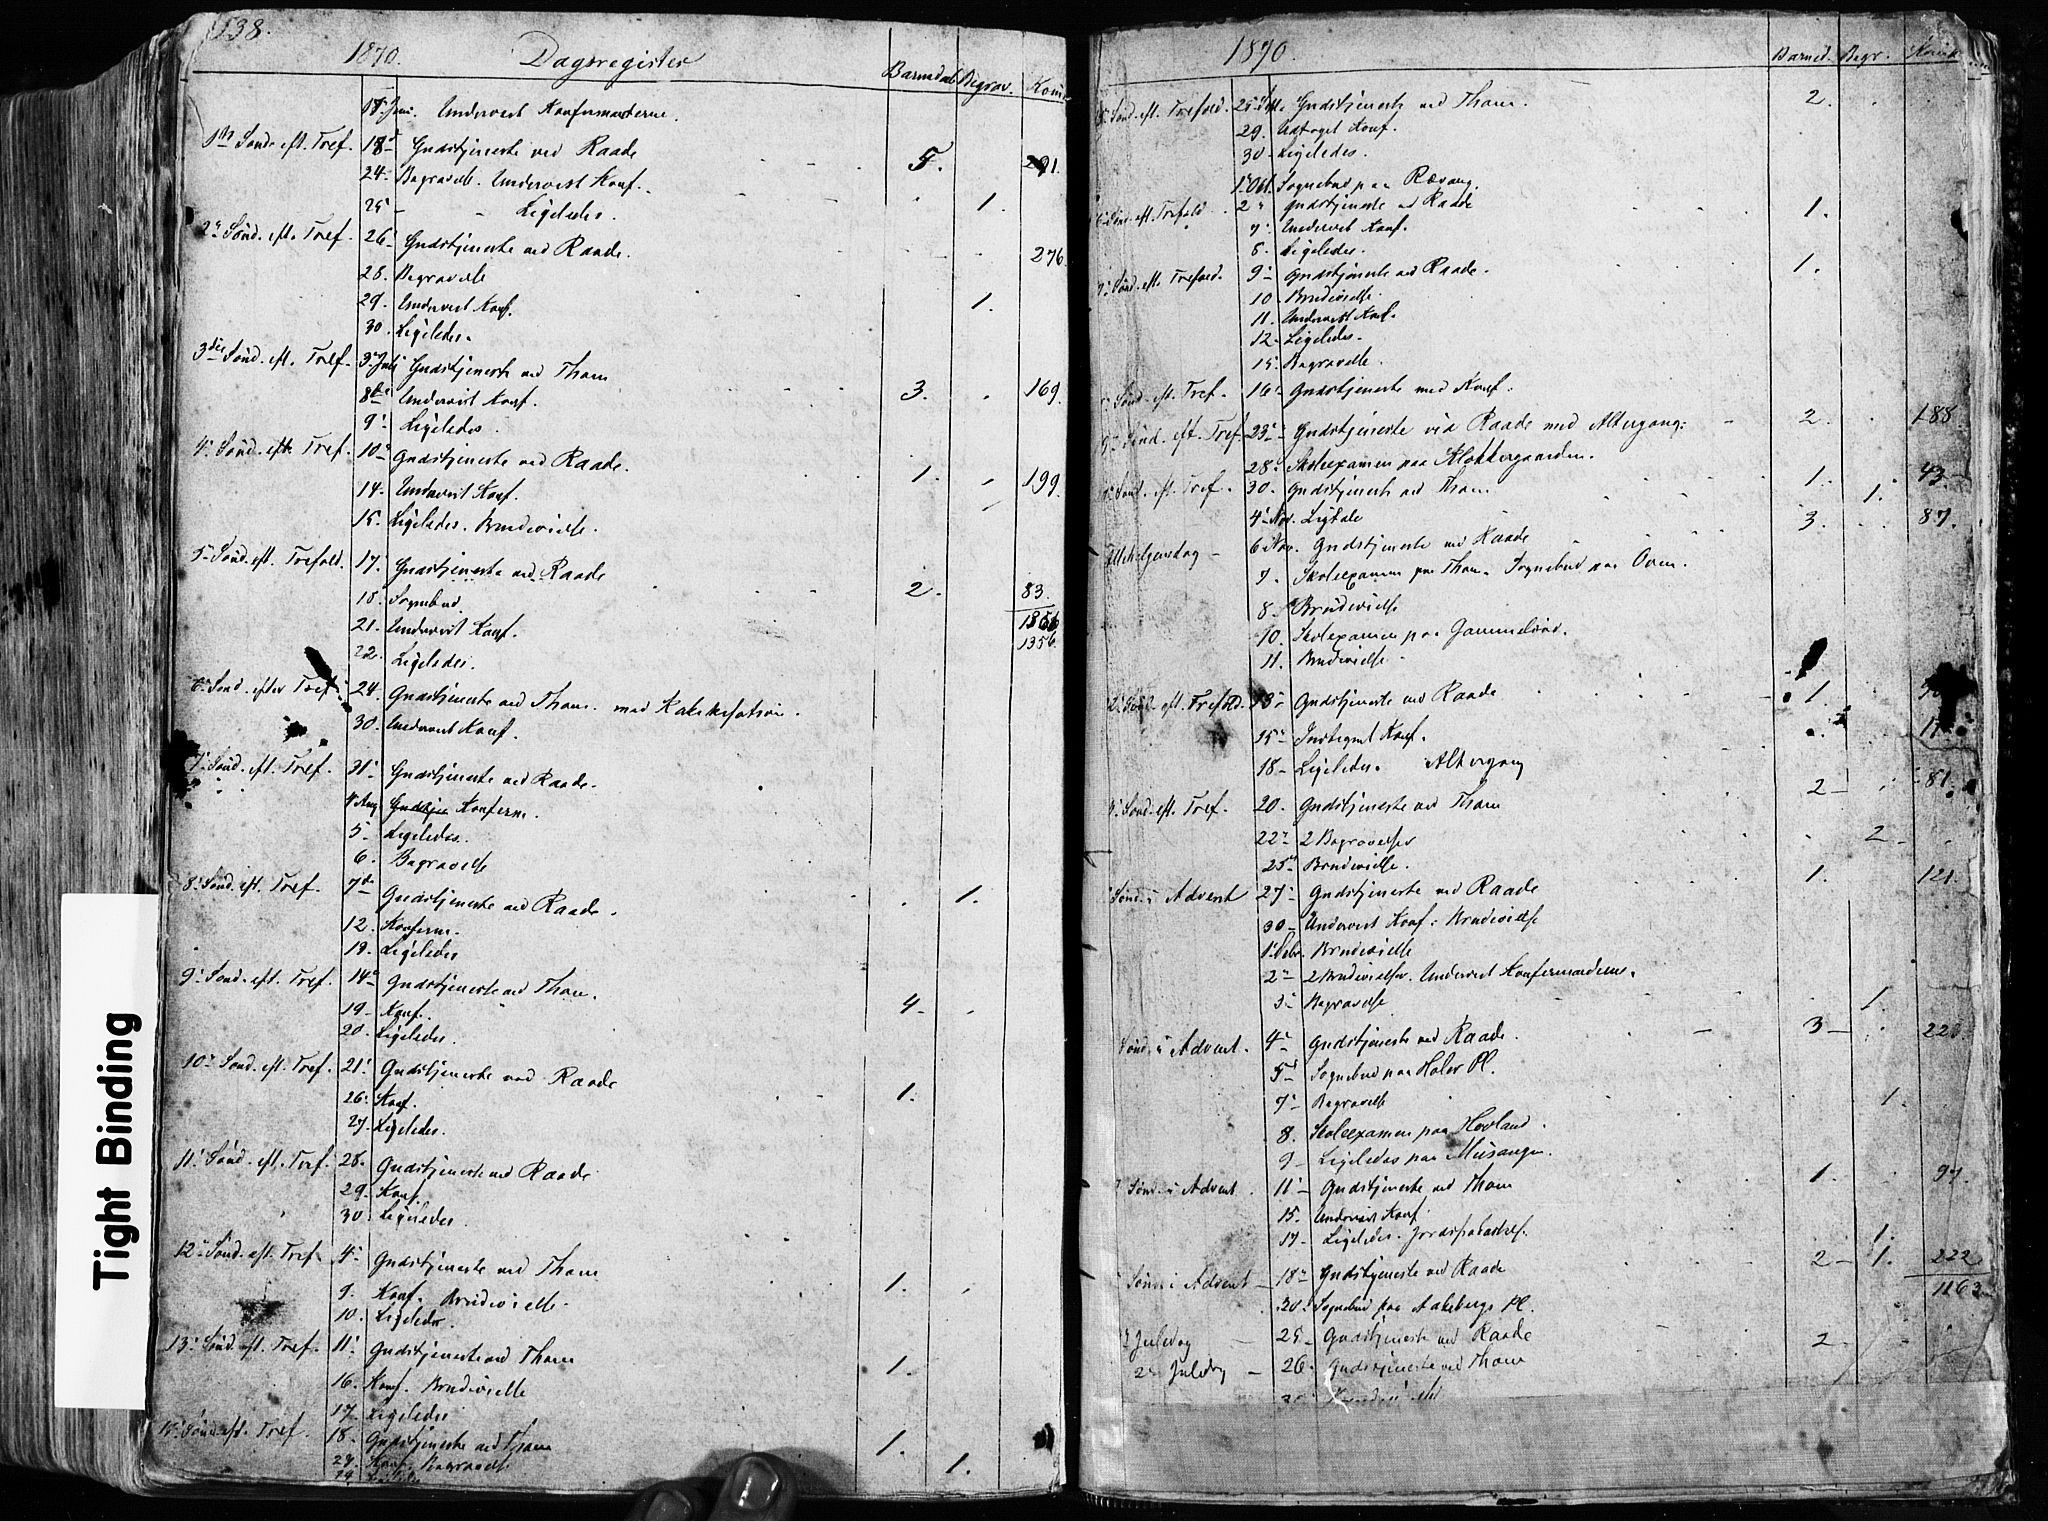 138.
1870. Dagsregister Barnedaab Begrav. Kom
17 Juni. Undervist Konfirmanterne.
1ste Sønd. eft. Tref. 18de Gudstjeneste ved Raade 5. 291.
24. Begravelse. Undervist Konf.
25 - - Ligeledes. 1.
2den Sønd. eft. Tref. 26. Gudstjeneste ved Raade. 276.
28. Begravelse
29. Undervist Konf. 1.
30. Ligeledes.
3die Sønd. eft. Tref. 3. Juli Gudstjeneste ved Thom
8de Undervist Konf. 3. 169.
9. Ligeledes.
4. Sønd. eft. Tref. 10. Gudstjeneste ved Raade.
14. Undervist Konf. 1. 199.
15. Ligeledes. Brudevielse.
5. Sønd. eft. Trefold. 17. Gudstjeneste ved Raade
18. Sognebud. 2. 83.
21. Undervist Konf. 1356
22. Ligeledes. 1356
6. Sønd. efter Tref. 24. Gudstjeneste ved Thom. med Katekisation.
30. Undervist Konf.
7. Sønd. eft. Tref. 31. Gudstjeneste ved Raade.
4 Aug. Gudstjen Konferm.
5. Ligeledes.
6. Begravelse
8. Sønd. eft. Tref. 7de Gudstjeneste ved Raade. 1.
12. Konferm.
13. Ligeledes
9. Sønd. eft. Tref. 14. Gudstjeneste ved Thom.
19. Konf. 4.
20. Ligeledes.
10. Sønd. eft. Tref. 21. Gudstjeneste ved Raade
26. Konf. 1.
27. Ligeledes.
11. Sønd. eft. Tref. 28. Gudstjeneste ved Raade
29. Konf.
30. Ligeledes
12. Sønd. eft. Tref. 4. Gudstjeneste ved Thom
9. Konf. Brudevielse. 1.
10. Ligeledes.
13. Sønd. eft. Tref. 11. Gudstjeneste ved Thom 1.
16. Konf. Brudevielse
17. Ligeledes
Sønd. eft. Tref. 18. Gudstjeneste ved Thom 1.
Konf. Begravelse 1.
1870. Barned. Begr. Komm
Sønd. eft. Trefold. 25 Gudstjeneste ved Thom. 2.
29. Konf.
30. Ligeledes.
1. Okt. Sognebud paa
Sønd. eft. Trefold. 2. Gudstjeneste ved Raade 1.
7. Undervist Konf.
8. Ligeledes.
Sønd. eft. Trefold. 9. Gudstjeneste ved Raade. 1.
10. Brudevielse.
11. Undervist Konf.
12. Ligeledes.
15. Begravelse.
Sønd. eft. Tref. 16. Gudstjeneste med Konf.
Sønd. eft. Tref. 23. Gudstjeneste ved Raade med Altergang. 2. 188.
28. Skoleexamen paa Klokkergaarden.
Sønd. eft. Tref. 30. Gudstjeneste ved Thom 1. 1. 43.
4. Nov. Ligtale 3. 87.
Allehelgensdag - 6 Nov. Gudstjeneste ved Raade
7. Skoleexamen paa Thom. Sognebud paa
8. Brudevielse
10. Skolexamen paa
11. Brudevielse
Sønd. eft. Trefold. 13. Gudstjeneste ved Raade 1.
15. Konf.
18. Ligeledes. Altergang
Sønd. eft. Tref. 20. Gudstjeneste ved Thom 2 81.
22. 2 Begravelser 2.
25. Brudevielse.
Sønd. i Advent 27. Gudstjeneste ved Raade 1. 121.
30. Undervist Konf. Brudevielse
1. Decbr. Brudevielse
2. 2 Brudevielser. Undervist Konfermanderne.
3. Begravelse 1.
Sønd. i Advent. 4. Gudstjeneste ved Raade. 3 223.
5. Sognebud paa Pl.
7. Begravelse 1.
8. Skoleexamen paa Hovland.
9. Ligeledes paa
Sønd. i Advent. 11. Gudstjeneste ved Thom 1. 97.
15. Undervist Konf.
17. Ligeledes. Jordspaakastelse. 1.
Sønd. i Advent 18. Gudstjeneste ved Raade 2 1. 222
20. Sognebud paa Pl. 1163
Juledag 25. Gudstjeneste ved Raade 2
2. Juledag 26. Gudstjeneste ved Thom
Tight Binding